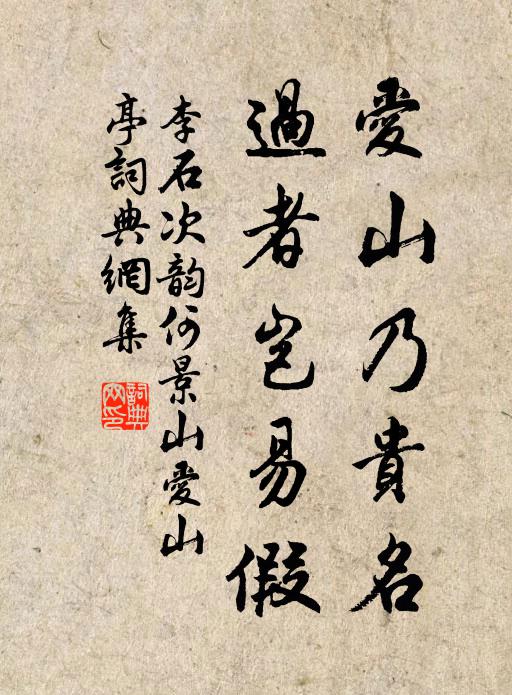 愛山乃貴名
過者豈易假
李石次韵何景山愛山
亭詞典網集
詞典
网印